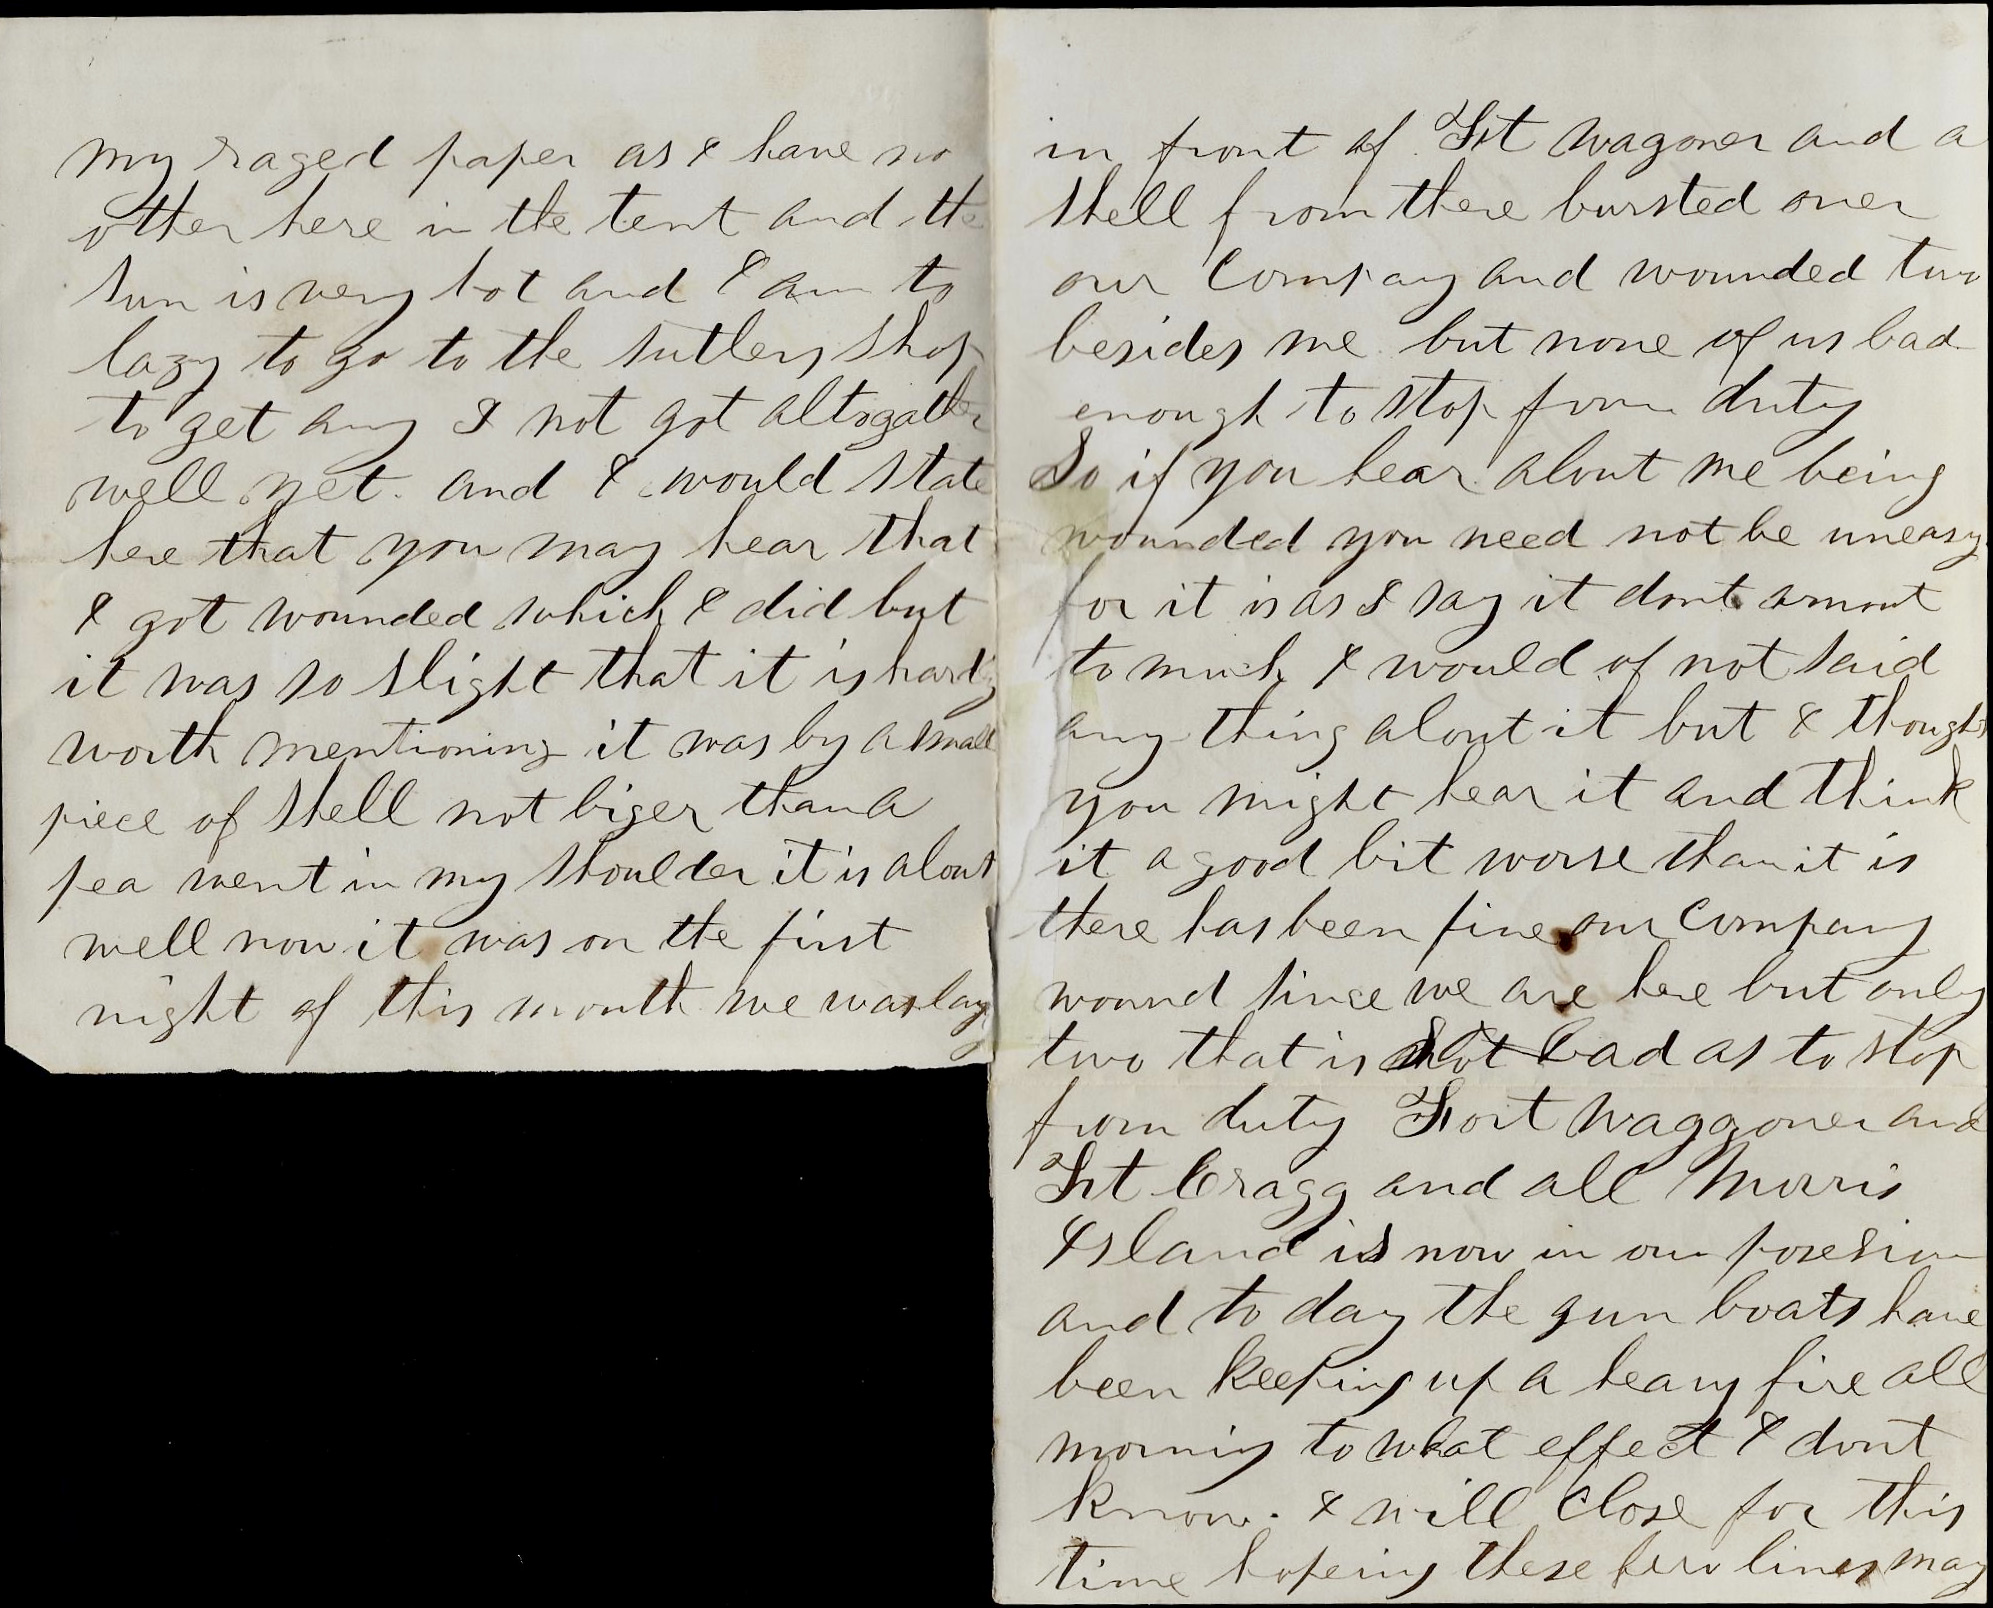 my raged paper as I have no
other here in the tent and the
sun is very hot and I am to
lazy to go to the sutlers shop
to get any I not got altogather
well yet. and I would state
here that you may hear that
I got wounded which I did but
it was so slight that it is hardly
worth mentioning it was by a small
piece of shell not biger than a
pea went in my shoulder it is about
well now it was on the first
night of this month we was lay
in front of Frt Wagoner and a
shell from there bursted over
our Company and wounded two
besides me but none of us bad
enough to stop from duty
So if you hear about me being
wounded you need not be uneasy
for it is as I say it dont amout
to much I would of not said
any thing about it but I thought
you might hear it and think
it a good bit worse than it is
there has been five our Company
wound since we are here but only
two that is bad as to stop
from duty Fort Waggoner and
Frt Cragg and all Morris
Island is now in our posesion
and to day the gun boats have
been keeping up a heavy fire all
morning to what effect I dont
know. I will close for this
time hopeing these few lines may